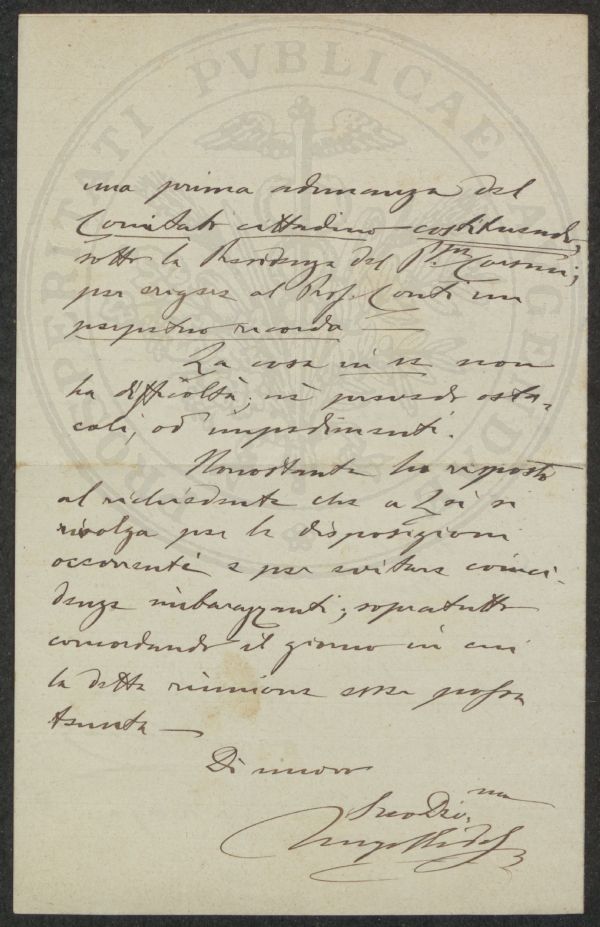 PROSPERITATI PVBLICAE AVGENDAE
una prima adunanza del
Comitato cittadino costituendo,
sotto la Presidenza del P.pe Corsini,
per erigere al Prof. Conti un
perpetuo ricordo
La cosa in se non
ha difficoltà; nè prevedo osta-
coli, od impedimenti.
Nonostante ho risposto
al richiedente che a Lei si
rivolga per le disposizioni
occorrenti e per evitare coinci-
denze imbarazzanti; sopratutto
concordando il giorno in cui
la detta riunione esser possa
tenuta —
Di nuovo
Suo Dev.mo